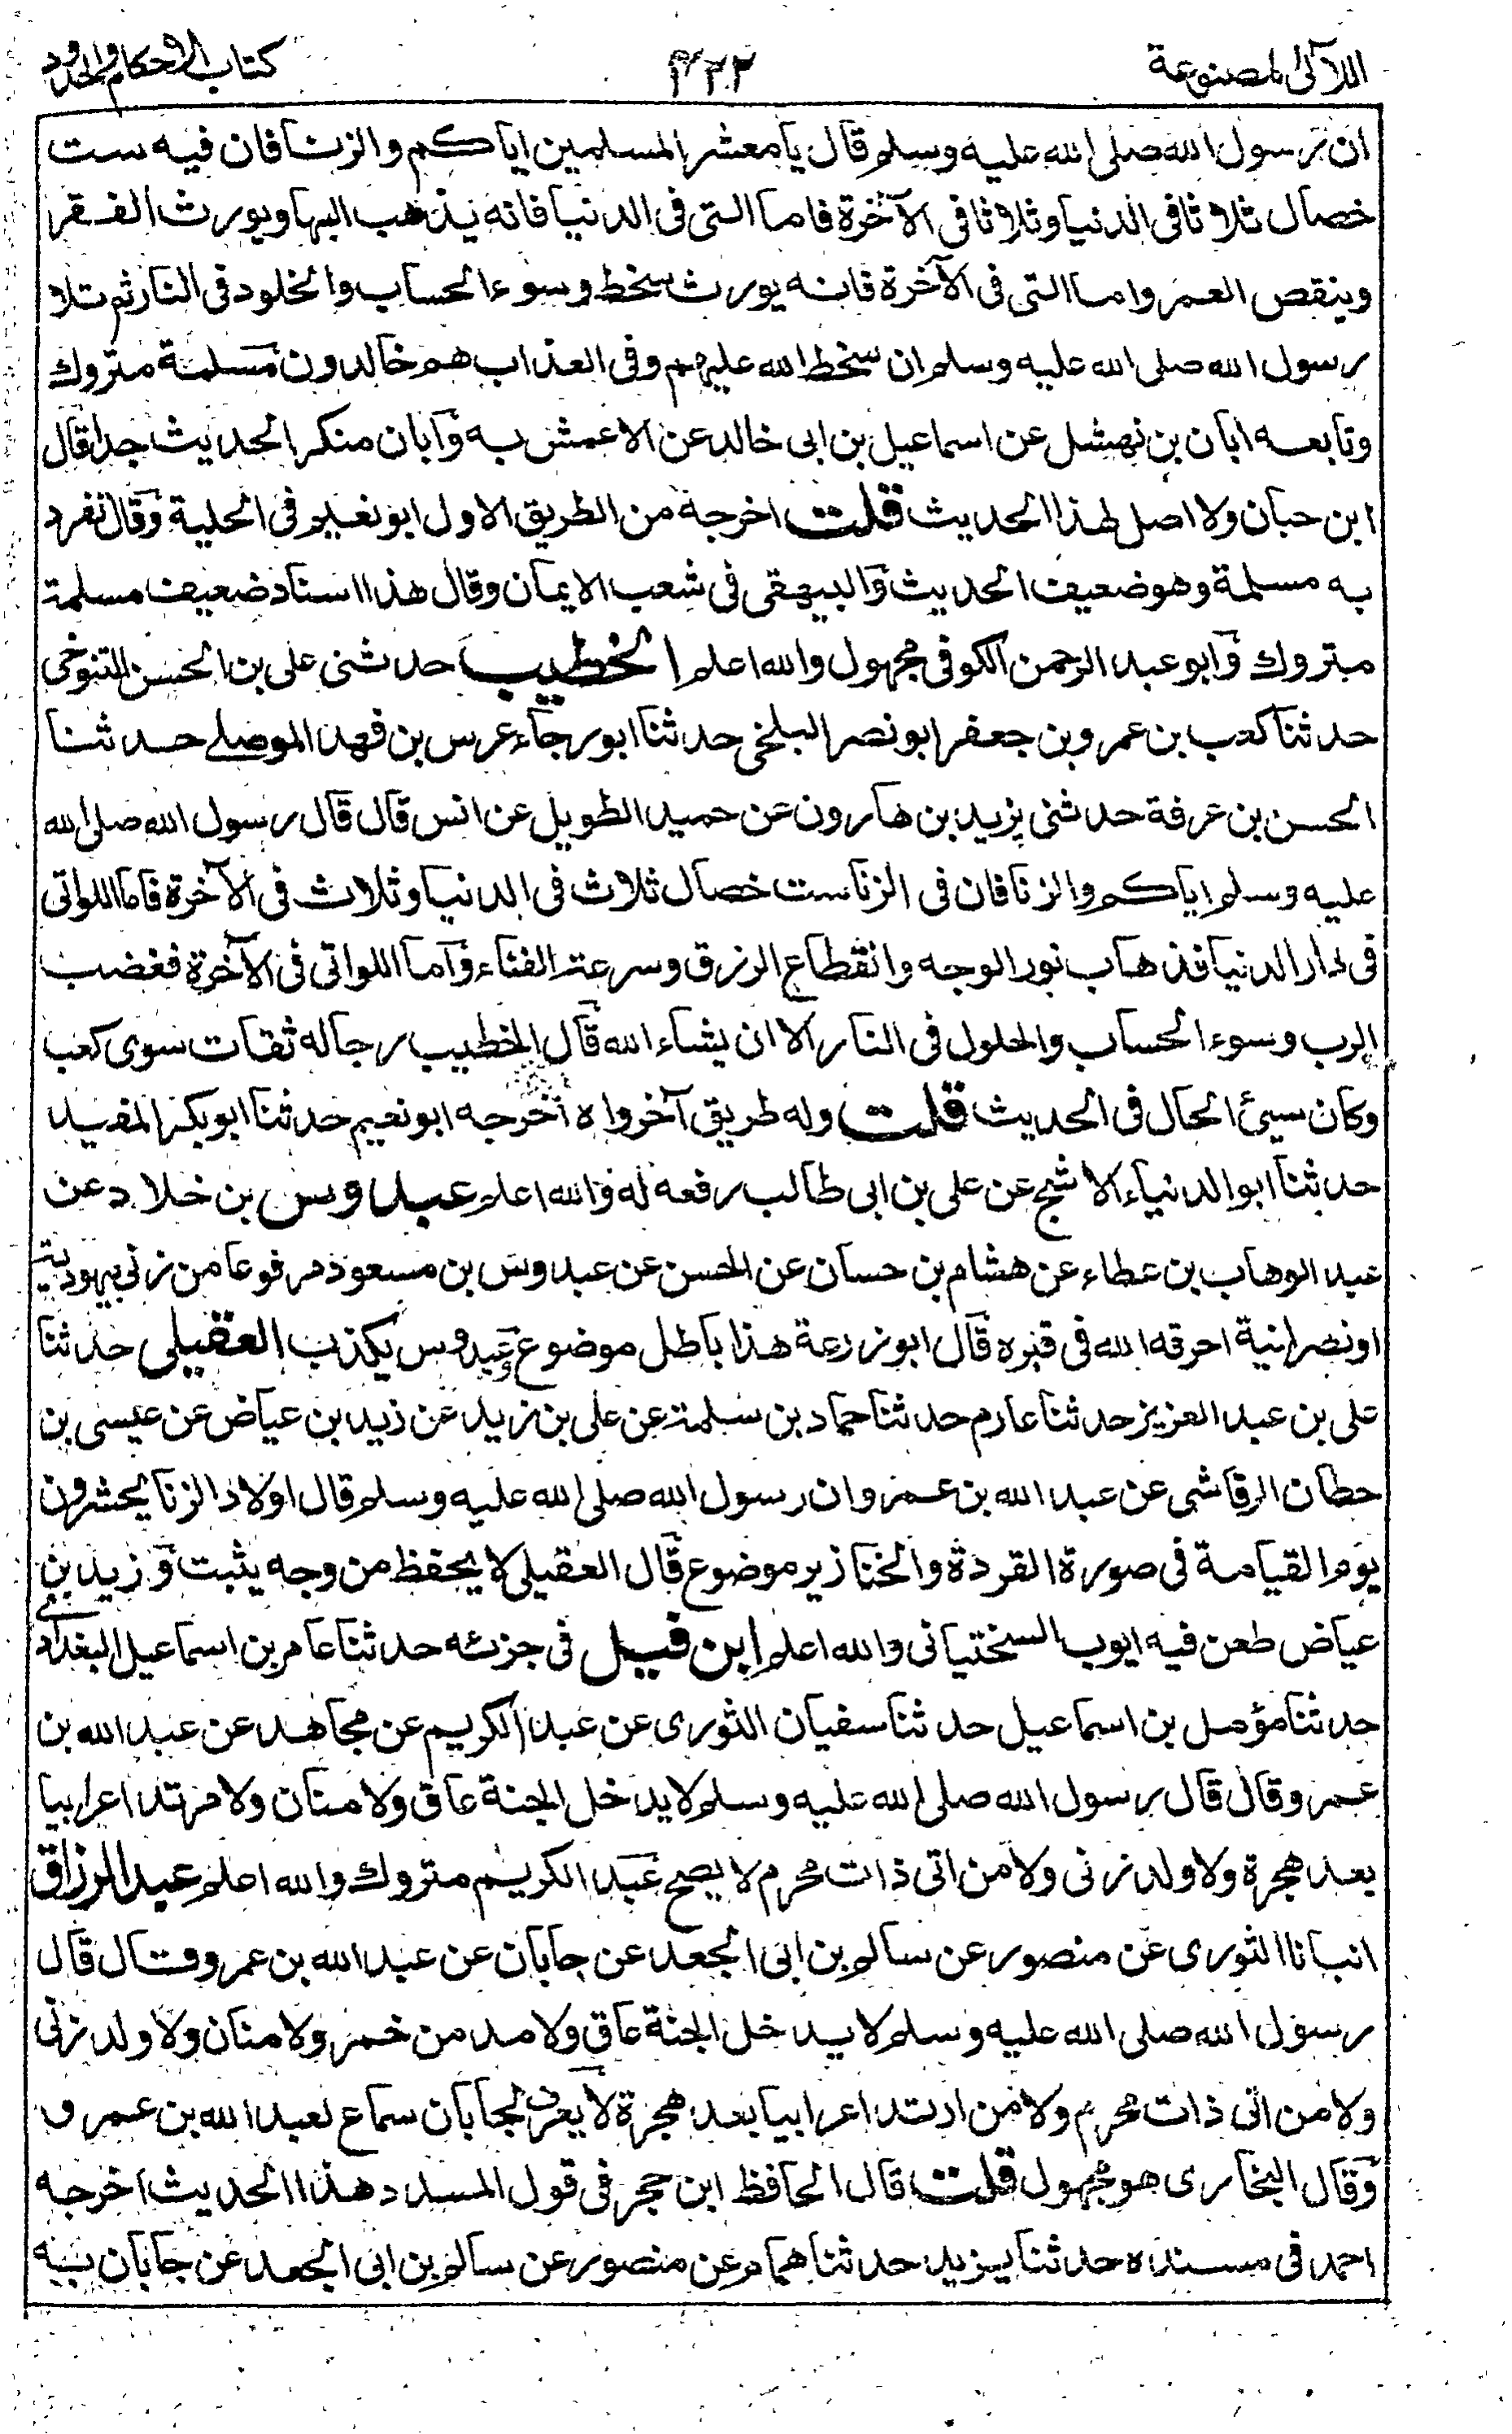 اللآلئ المصنوعة
كتاب الاحكام والحدود
ان رسول الله صلى الله عليه وسلم قال يا معشر المسلمين اياكم والزنا فان فيه ست
خصال ثلاثا فى الدنيا وثلاثا فى الآخرة فاما التى فى الدنيا فانه يذهب البها ويورث الفقر
وينقص العمر واما التى فى الآخرة فانه يورث سخط وسوء الحساب والخلود فى النار ثم تلا
رسول الله صلى الله عليه وسلم ان سخط الله عليهم وفى العذاب هم خالدون مسلمة متروك
وتابعه ابان بن نهشل عن اسماعيل بن ابى خالد عن الاعمش به وابان منكر الحديث جدا قال
ابن حبان ولا اصل لهذا الحديث قلت اخرجه من الطريق الاول ابو نعيم فى الحلية وقال تفرد
به مسلمة وهو ضعيف الحديث والبيهقى فى شعب الايمان وقال هذا اسناد ضعيف مسلمة
متروك وابو عبد الرحمن الكوفى مجهول والله اعلم الخطيب حدثنى على بن الحسن التنوخى
حدثنا كعب بن عمرو بن جعفر ابو نصر البلخى حدثنا ابو رجاء عرس بن فهد الموصلى حدثنا
الحسن بن عرفة حدثنى يزيد بن هارون عن حميد الطويل عن انس قال قال رسول الله صلى الله
عليه وسلم اياكم والزنا فان فى الزنا ست خصال ثلاث فى الدنيا وثلاث فى الآخرة فاما اللواتى
فى دار الدنيا فذهاب نور الوجه وانقطاع الرزق وسرعة الفناء واما اللواتى فى الآخرة فغضب
الرب وسوء الحساب والحلول فى النار الا ان يشاء الله قال الخطيب رجاله ثقات سوى كعب
وكان سيئ الحال فى الحديث قلت وله طريق آخر واه اخرجه ابو نعيم حدثنا ابو بكر المفيد
حدثنا ابو الدنياء الاشج عن على بن ابى طالب رفعه له والله اعلم عبدوس بن خلاد عن
عبد الوهاب بن عطاء عن هشام بن حسان عن الحسن عن عبدوس بن مسعود مرفوعا من زنى بيهودية
او نصرانية احرقه الله فى قبره قال ابو زرعة هذا باطل موضوع وعبدوس يكذب العقيلى حدثنا
على بن عبد العزيز حدثنا عارم حدثنا حماد بن سلمة عن على بن زيد عن زيد بن عياض عن عيسى بن
حطان الرقاشى عن عبد الله بن عمرو ان رسول الله صلى الله عليه وسلم قال اولاد الزنا يحشرون
يوم القيامة فى صورة القردة والخنازير موضوع قال العقيلى لا يحفظ من وجه يثبت وزيد بن
عياض طعن فيه ايوب السختيانى والله اعلم ابن فيل فى جزئه حدثنا عامر بن اسماعيل البغدادى
حدثنا مؤمل بن اسماعيل حدثنا سفيان الثورى عن عبد الكريم عن مجاهد عن عبد الله بن
عمرو قال قال رسول الله صلى الله عليه وسلم لا يدخل الجنة عاق ولا منان ولا مرتد اعرابيا
بعد هجرة ولا ولد زنى ولا من اتى ذات محرم لا يصح عبد الكريم متروك والله اعلم عبد الرزاق
انبانا الثورى عن منصور عن سالم بن ابى الجعد عن جابان عن عبد الله بن عمرو قال قال
رسول الله صلى الله عليه وسلم لا يدخل الجنة عاق ولا مدمن خمر ولا منان ولا ولد زنى
ولا من اتى ذات محرم ولا من ارتد اعرابيا بعد هجرة لا يعرف لجابان سماع لعبد الله بن عمرو
وقال البخارى هو مجهول قلت قال الحافظ ابن حجر فى قول المسدد هذا الحديث اخرجه
احمد فى مسنده حدثنا يزيد حدثنا همام عن منصور عن سالم بن ابى الجعد عن جابان ببه